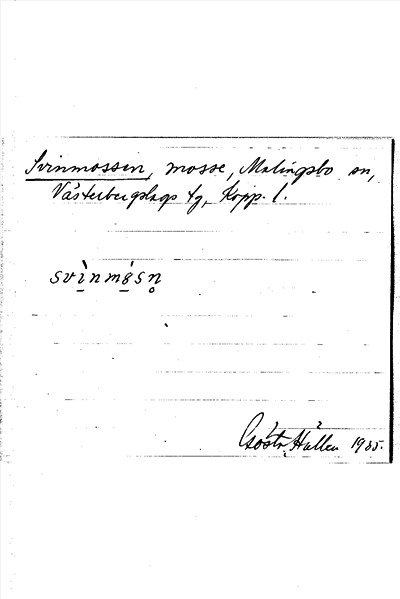 Svinmossen, mosse, Malingsbo sn,
Västerbergslags tg, Kopp. l.
svìnmósn̥
Gösta Hallén 1935.